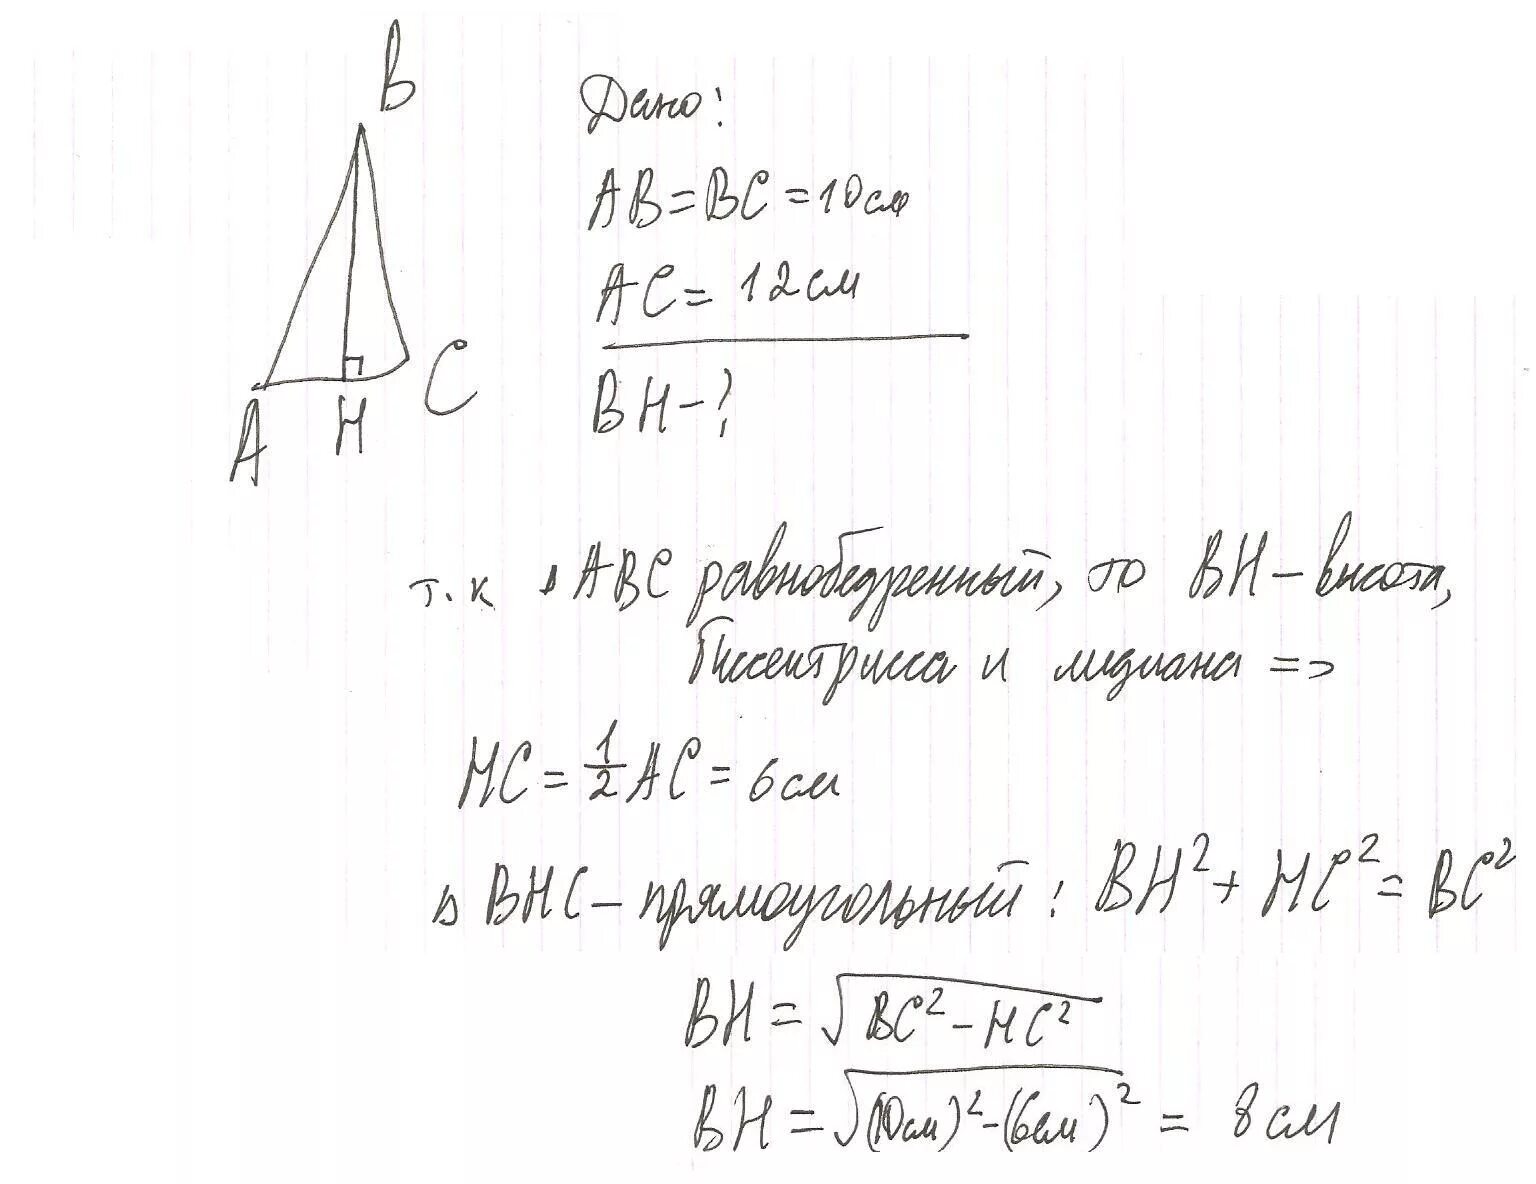 B
A
H
C
Дано:
AB=BC=10см
AC=12см
BH-?
т.к ΔABC равнобедренный, то BH-высота,
биссектрисса и медиана =>
HC=1/2AC=6см
ΔBHC-прямоугольный: BH²+HC²=BC²
BH=√BC²-HC²
BH=√(10см)²-(6см)²=8см